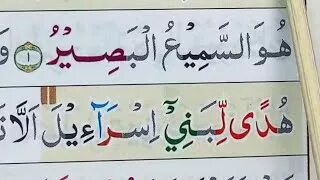 هُوَ السَّمِيْعُ الْبَصِيْرُ ۝١ وَ
هُدًى لِّبَنِيْٓ اِسْرَآءِيْلَ اَلَّا تَ